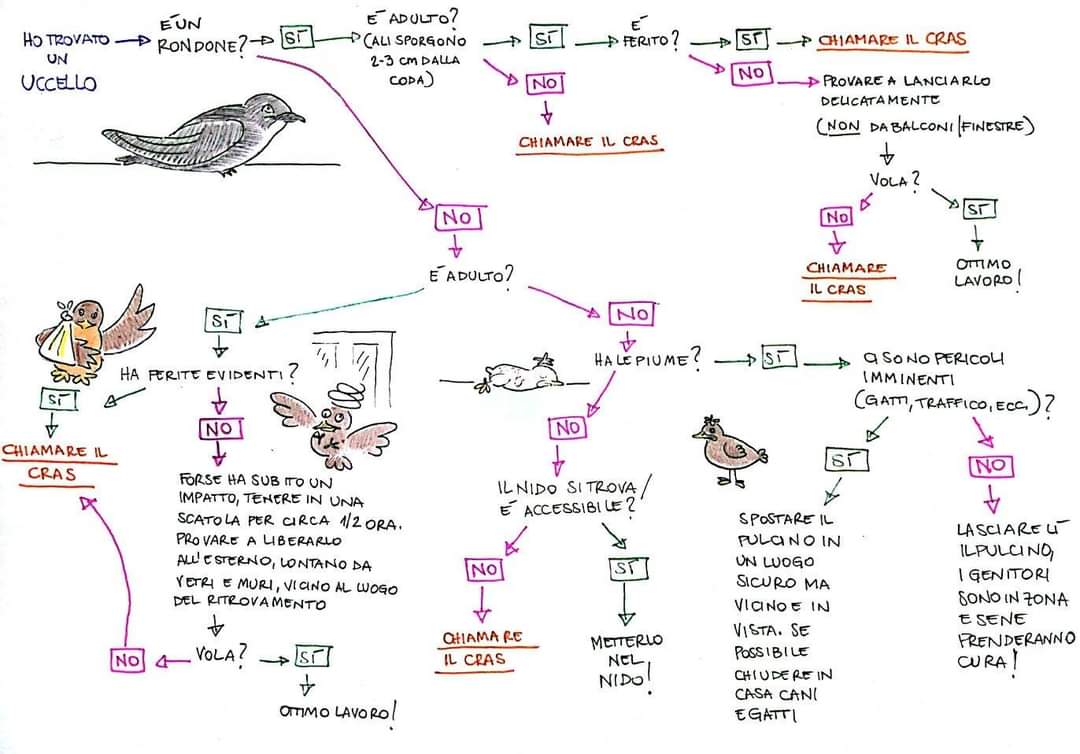 HO TROVATO
UN
UCCELLO
É UN
RONDONE?
SÍ
É ADULTO?
(ALI SPORGONO
2-3 CM DALLA
CODA)
SÍ
É
FERITO?
SÍ
CHIAMARE IL CRAS
NO
PROVARE A LANCIARLO
DELICATAMENTE
(NON DA BALCONI/FINESTRE)
VOLA?
NO
CHIAMARE
IL CRAS
SÍ
OTTIMO
LAVORO!
NO
CHIAMARE IL CRAS
NO
É ADULTO?
SÍ
HA FERITE EVIDENTI?
SÍ
CHIAMARE IL
CRAS
NO
FORSE HA SUBITO UN
IMPATTO, TENERE IN UNA
SCATOLA PER CIRCA 1/2 ORA.
PROVARE A LIBERARLO
ALL'ESTERNO, LONTANO DA
VETRI E MURI, VICINO AL LUOGO
DEL RITROVAMENTO
VOLA?
NO
SÍ
OTTIMO LAVORO!
NO
HA LE PIUME?
NO
IL NIDO SI TROVA/
É ACCESSIBILE?
NO
CHIAMARE
IL CRAS
SÍ
METTERLO
NEL
NIDO!
SÍ
CI SONO PERICOLI
IMMINENTI
(GATTI, TRAFFICO, ECC.)?
SÍ
SPOSTARE IL
PULCINO IN
UN LUOGO
SICURO MA
VICINO E IN
VISTA. SE
POSSIBILE
CHIUDERE IN
CASA CANI
E GATTI
NO
LASCIARE LÍ
IL PULCINO,
I GENITORI
SONO IN ZONA
E SE NE
PRENDERANNO
CURA!